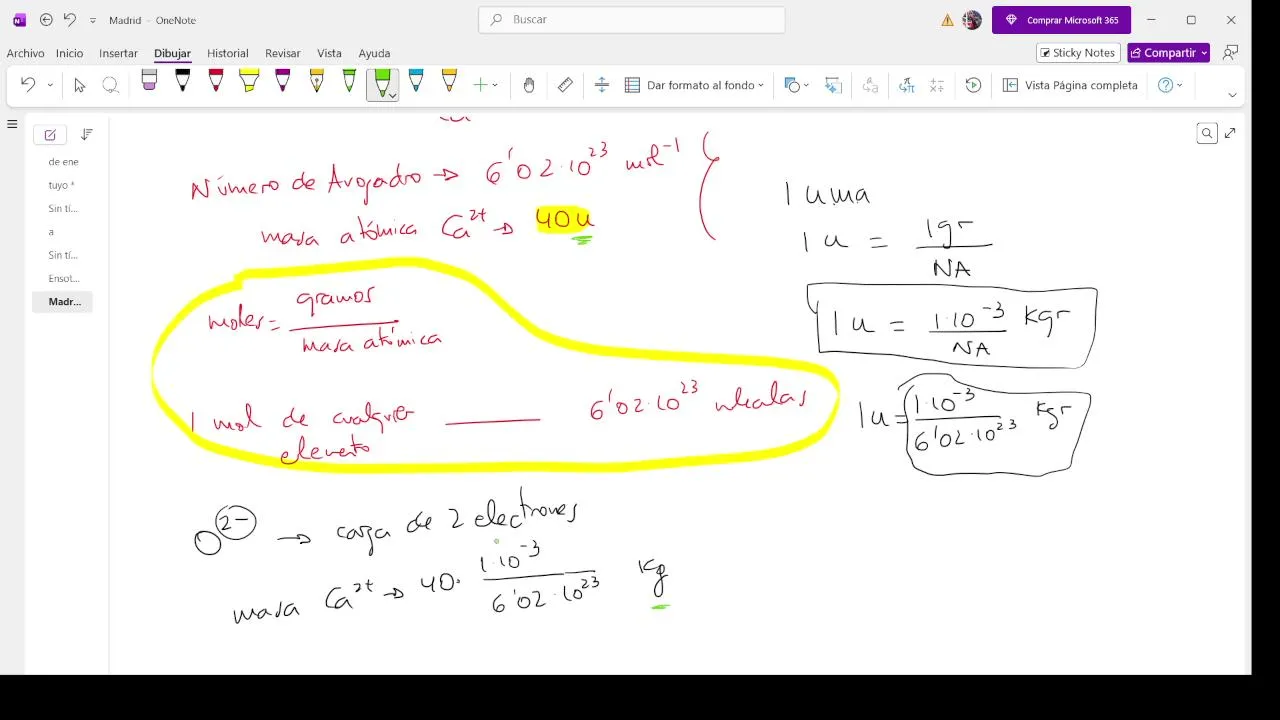 Madrid - OneNote
Buscar
Comprar Microsoft 365
Archivo Inicio Insertar Dibujar Historial Revisar Vista Ayuda
Sticky Notes
Compartir
Dar formato al fondo
Vista Página completa
de ene
tuyo *
Sin tí...
a
Sin tí...
Ensot...
Madr...
Número de Avogadro → 6'02·10²³ mol⁻¹
masa atómica Ca²⁺ → 40u
moles = gramos / masa atómica
1 mol de cualquier elemento ____ 6'02·10²³
1 uma
1 u = 1gr / NA
1 u = 1·10⁻³ / NA kgr
1 u = 1·10⁻³ / 6'02·10²³ kgr
O²⁻ → carga de 2 electrones
masa Ca²⁺ → 40· 1·10⁻³ / 6'02·10²³ kg